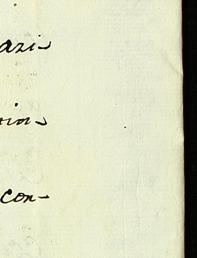 azi-
tion-
con-